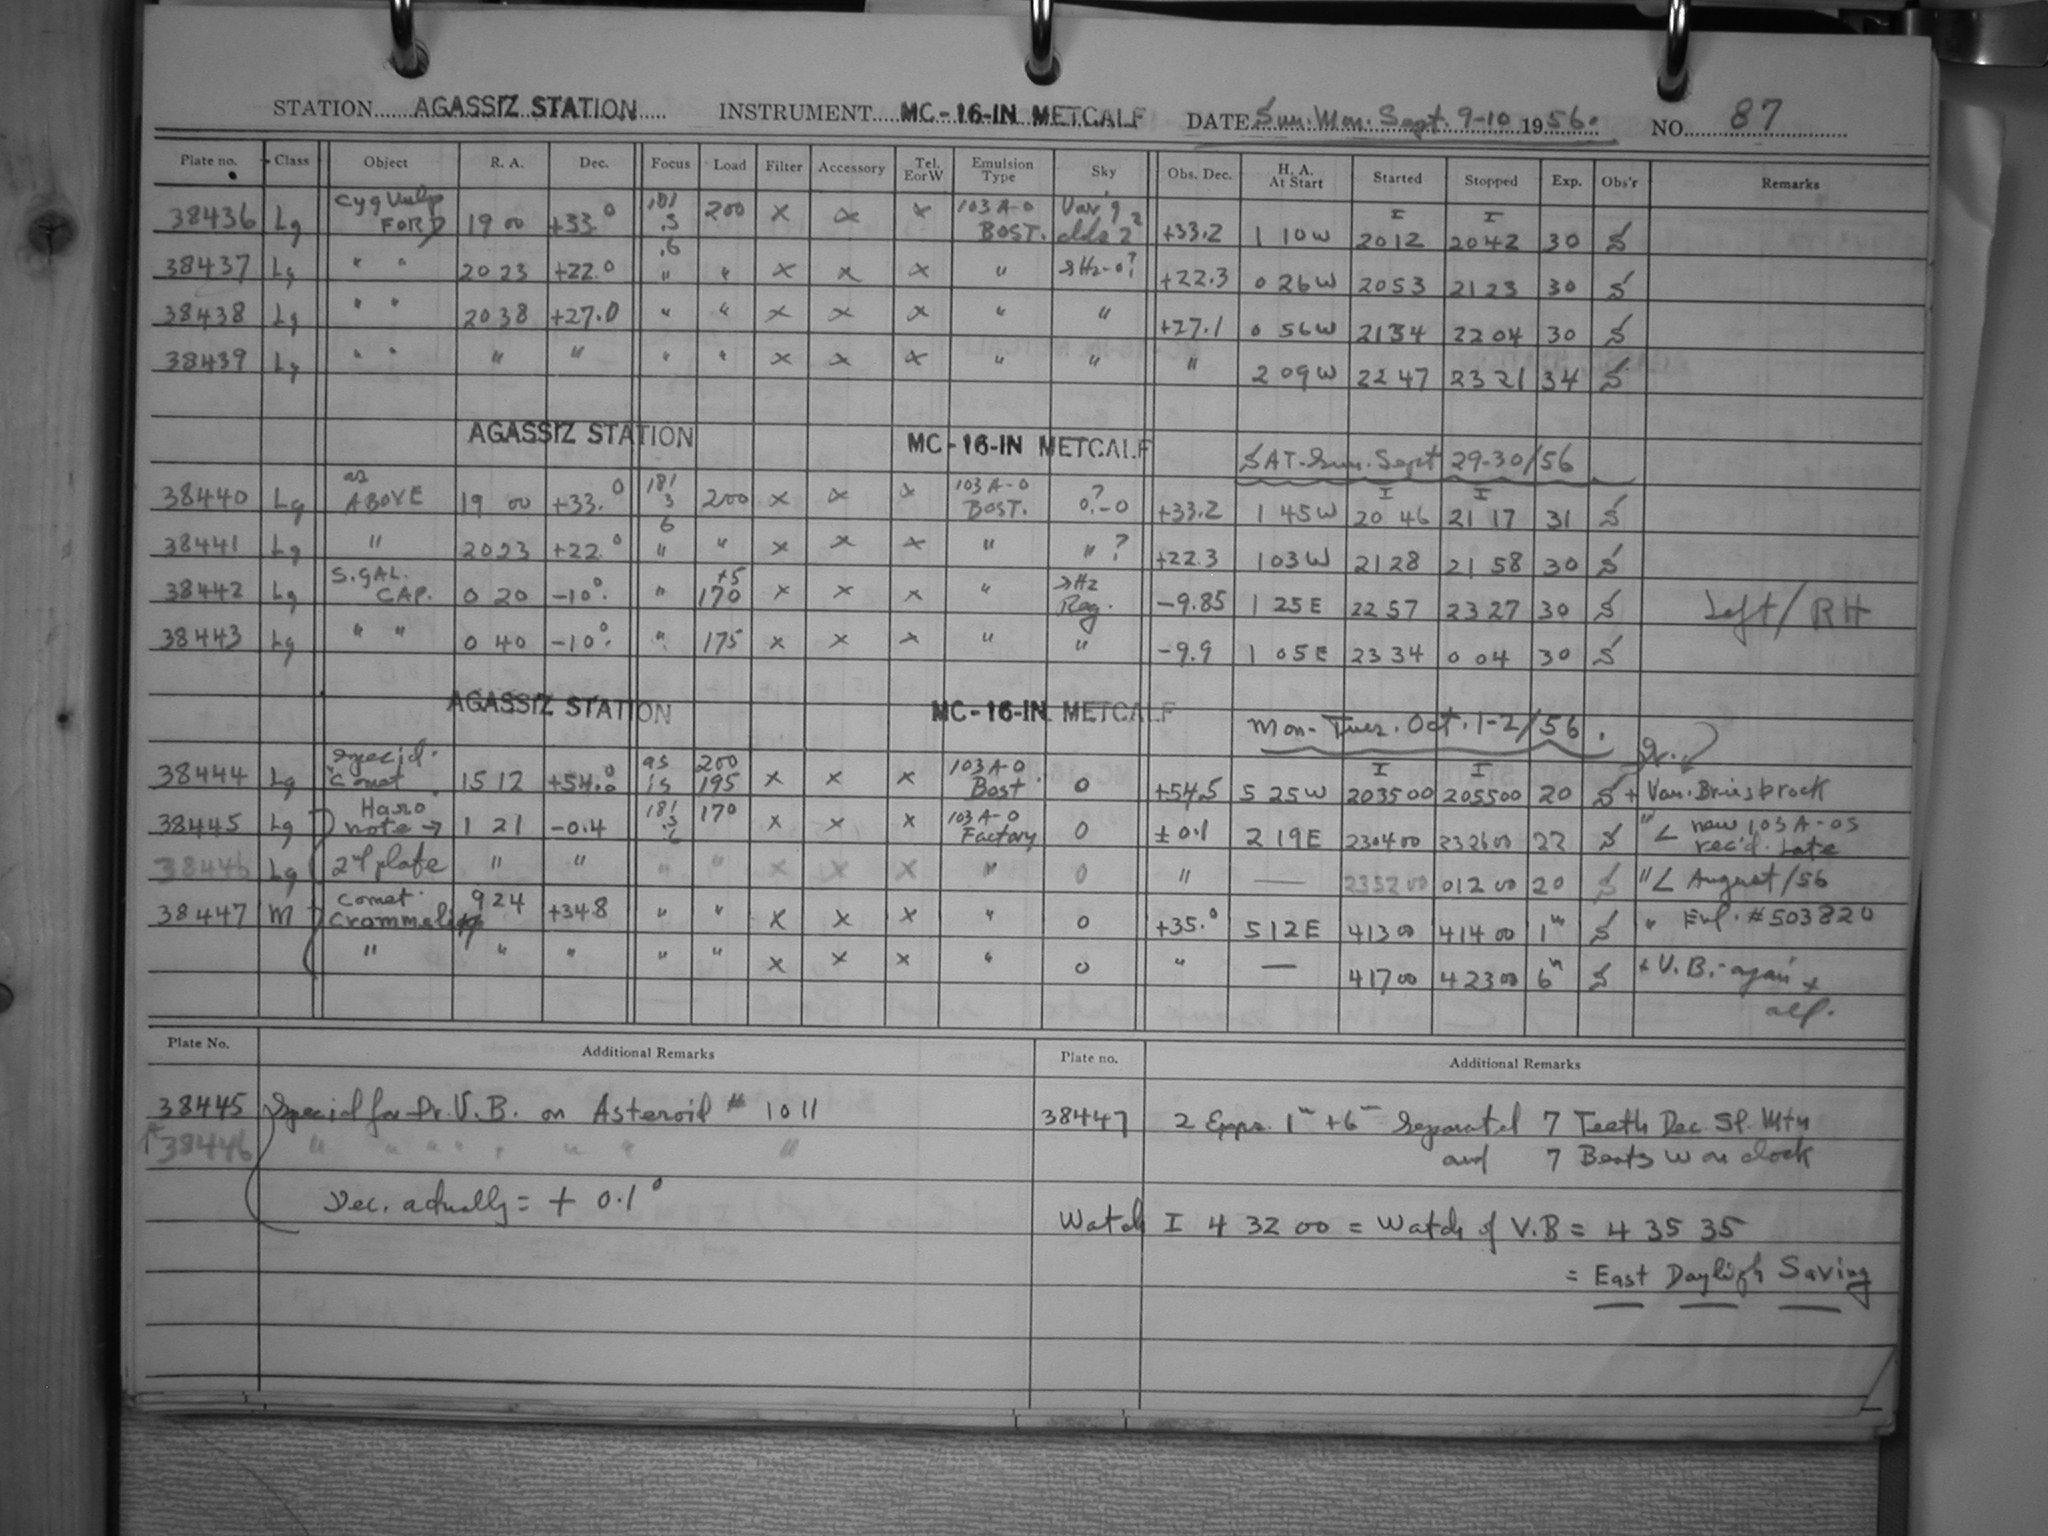 STATION AGASSIZ STATION INSTRUMENT MC-16-IN METCALF DATE Sun. Mon. Sept. 9-10 1956. NO. 87
Plate no. Class Object R. A. Dec. Focus Load Filter Accessory Tel. E or W Emulsion Type Sky Obs. Dec. H. A. At Start Started Stopped Exp. Obs'r Remarks
38436 Lg Cyg Vulp FOR D 19 00 +33.0 181 .3 .6 200 x x x 103 A-O BOST. +33.2 1 10 W I 20 12 I 20 42 30 S
38437 Lg " " 20 23 +22.0 " " x x x " +22.3 0 26 W 20 53 21 23 30 S
38438 Lg " " 20 38 +27.0 " " x x x " " +27.1 0 56 W 21 34 22 04 30 S
38439 Lg " " " " " " x x x " " " 2 09 W 22 47 23 21 34 S
AGASSIZ STATION MC-16-IN METCALF SAT-Sun. Sept 29-30/56
38440 Lg as ABOVE 19 00 +33.0 181 3 6 200 x x x 103 A-O BOST. 0?-0 +33.2 1 45 W I 20 46 I 21 17 31 S
38441 Lg " 20 23 +22.0 " " x x x " " ? +22.3 1 03 W 21 28 21 58 30 S
38442 Lg S. GAL. CAP. 0 20 -10°. " +5 170 x x x " Reg. -9.85 1 25 E 22 57 23 27 30 S Left/RH
38443 Lg " " 0 40 -10°. " 175 x x x " " -9.9 1 05 E 23 34 0 04 30 S
AGASSIZ STATION MC-16-IN METCALF Mon-Tues. Oct. 1-2/56.
38444 Lg Special Comet 15 12 +54.0 as is 200 195 x x x 103 A-O Bost 0 +54.5 5 25 W I 20 35 00 I 20 55 00 20 S + Dr. Van. Briesbrock
38445 Lg Haro note → 1 21 -0.4 181 .3 .6 170 x x x 103 A-O Factory 0 ±0.1 2 19 E 23 04 00 23 26 00 22 S " ∠ new 103 A-Os rec'd. Late
38446 Lg 2nd plate " " " " x x x " 0 " — 23 52 00 0 12 00 20 S " ∠ August/56
38447 M Comet Crommelin 9 24 +34.8 " " x x x " 0 +35.° 5 12 E 4 13 00 4 14 00 1m S " Eul. #503820
" " " " " x x x " 0 " — 4 17 00 4 23 00 6m S + V. B.- again +
Plate No. Additional Remarks Plate no. Additional Remarks
38445 Special for Dr. V. B. on Asteroid # 1011
38446 " " " " " " "
Dec. actually = + 0.1°
38447 2 Exps. 1m + 6m Separated 7 Teeth Dec. Sl. Mtn
and 7 Beats W on clock
Watch I 4 32 00 = Watch of V.B = 4 35 35
= East Dayligh Saving